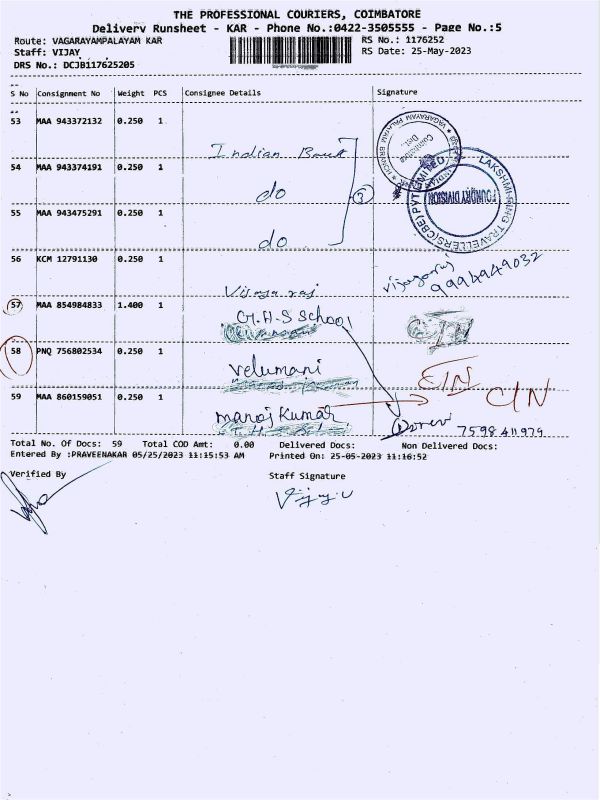 THE PROFESSIONAL COURIERS, COIMBATORE
Delivery Runsheet - KAR - Phone No.:0422-3505555 - Page No.:5
Route: VAGARAYAMPALAYAM KAR
RS No.: 1176252
Staff: VIJAY
RS Date: 25-May-2023
DRS No.: DCJB117625205
S No Consignment No Weight PCS Consignee Details Signature
53 MAA 943372132 0.250 1
Indian Bank
54 MAA 943374191 0.250 1
do
3
55 MAA 943475291 0.250 1
do
LAKSHMI RING TRAVELLERS (CBE) PVT
FOUNDRY DIVISION
56 KCM 12791130 0.250 1
Vijayaraj
9994949032
57 MAA 854984833 1.400 1
G.H.S School
58 PNQ 756802534 0.250 1
Velumani
59 MAA 860159051 0.250 1
manoj Kumar
7598411979
Total No. Of Docs: 59 Total COD Amt: 0.00 Delivered Docs: Non Delivered Docs:
Entered By :PRAVEENAKAR 05/25/2023 11:15:53 AM Printed On: 25-05-2023 11:16:52
Verified By
Staff Signature